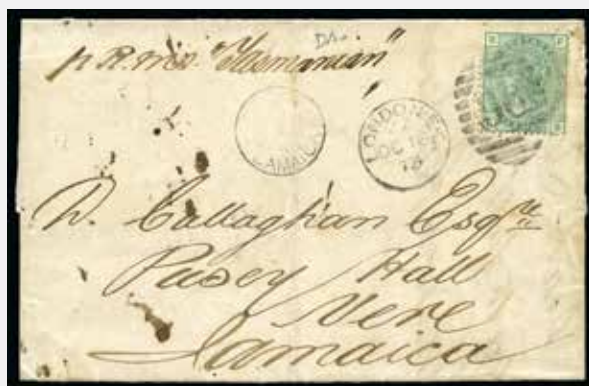 p R.M.S. "Tasmanian"
JAMAICA
LONDON
OC 16
D. Callaghan Esqre
Pusey Hall
Vere
Jamaica